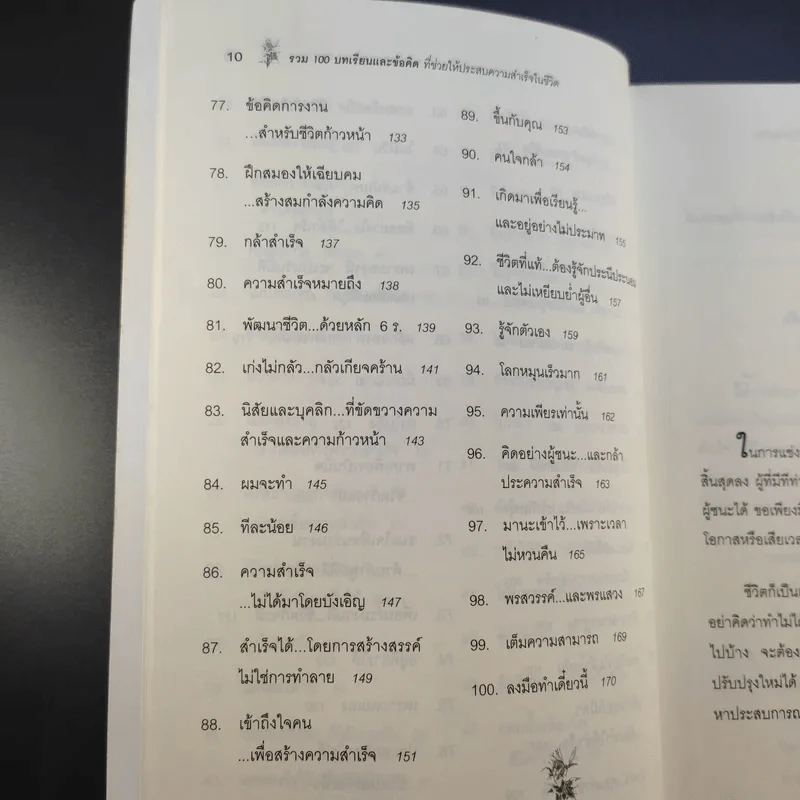 10 รวม 100 บทเรียนและข้อคิด ที่ช่วยให้ประสบความสำเร็จในชีวิต
77. ข้อคิดการงาน
...สำหรับชีวิตก้าวหน้า 133
78. ฝึกสมองให้เฉียบคม
...สร้างสมกำลังความคิด 135
79. กล้าสำเร็จ 137
80. ความสำเร็จหมายถึง 138
81. พัฒนาชีวิต...ด้วยหลัก 6 ร. 139
82. เก่งไม่กลัว...กลัวเกียจคร้าน 141
83. นิสัยและบุคลิก...ที่ขัดขวางความ
สำเร็จและความก้าวหน้า 143
84. ผมจะทำ 145
85. ทีละน้อย 146
86. ความสำเร็จ
...ไม่ได้มาโดยบังเอิญ 147
87. สำเร็จได้...โดยการสร้างสรรค์
ไม่ใช่การทำลาย 149
88. เข้าถึงใจคน
...เพื่อสร้างความสำเร็จ 151
89. ขึ้นกับคุณ 153
90. คนใจกล้า 154
91. เกิดมาเพื่อเรียนรู้...
และอยู่อย่างไม่ประมาท
92. ชีวิตที่แท้...ต้องรู้จักประนีประนอม
และไม่เหยียบย่ำผู้อื่น 157
93. รู้จักตัวเอง 159
94. โลกหมุนเร็วมาก 161
95. ความเพียรเท่านั้น 162
96. คิดอย่างผู้ชนะ...และกล้า
ประความสำเร็จ 163
97. มานะเข้าไว้...เพราะเวลา
ไม่หวนคืน 165
98. พรสวรรค์...และพรแสวง 167
99. เต็มความสามารถ 169
100. ลงมือทำเดี๋ยวนี้ 170
ในการแข่ง
สิ้นสุดลง ผู้ที่มีทีท่า
ผู้ชนะได้ ขอเพียง
โอกาสหรือเสียเวล
ชีวิตก็เป็น
อย่าคิดว่าทำไม่ได้
ไปบ้าง จะต้อง
ปรับปรุงใหม่ได้
หาประสบการณ